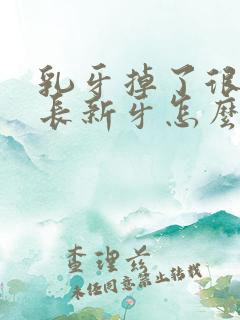 乳牙掉了很
长新牙怎麽
查理兹
未经同意禁止转载